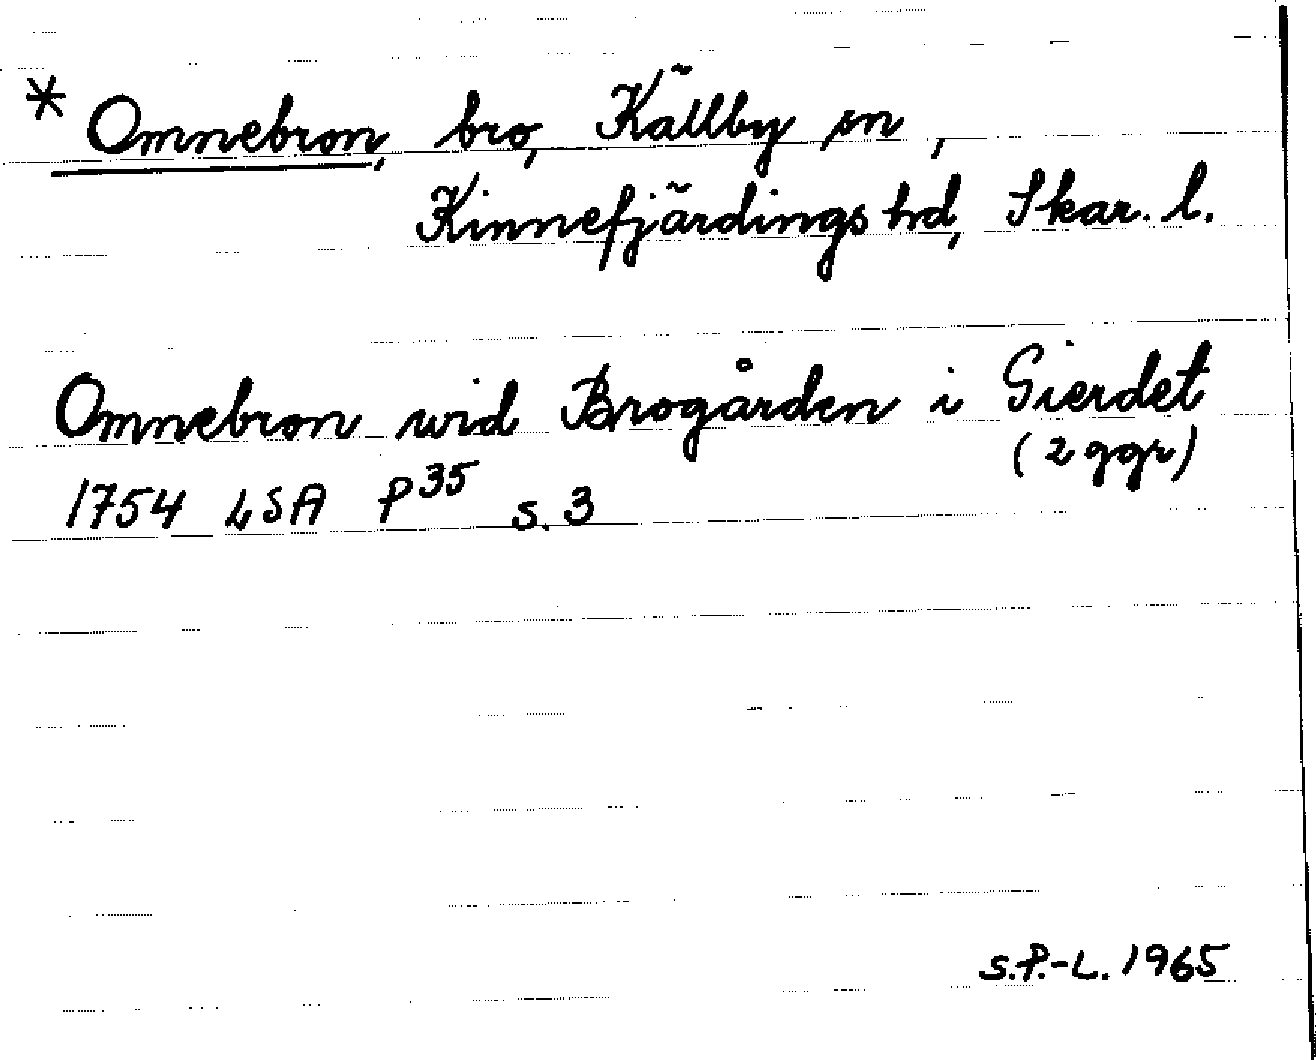 * Omnebron, bro, Källby sn,
Kinnefjärdings hd, Skar. l.
Omnebron wid Brogården i Gierdet
(2 ggr)
1754 LSA P35 s. 3
S.P.-L. 1965